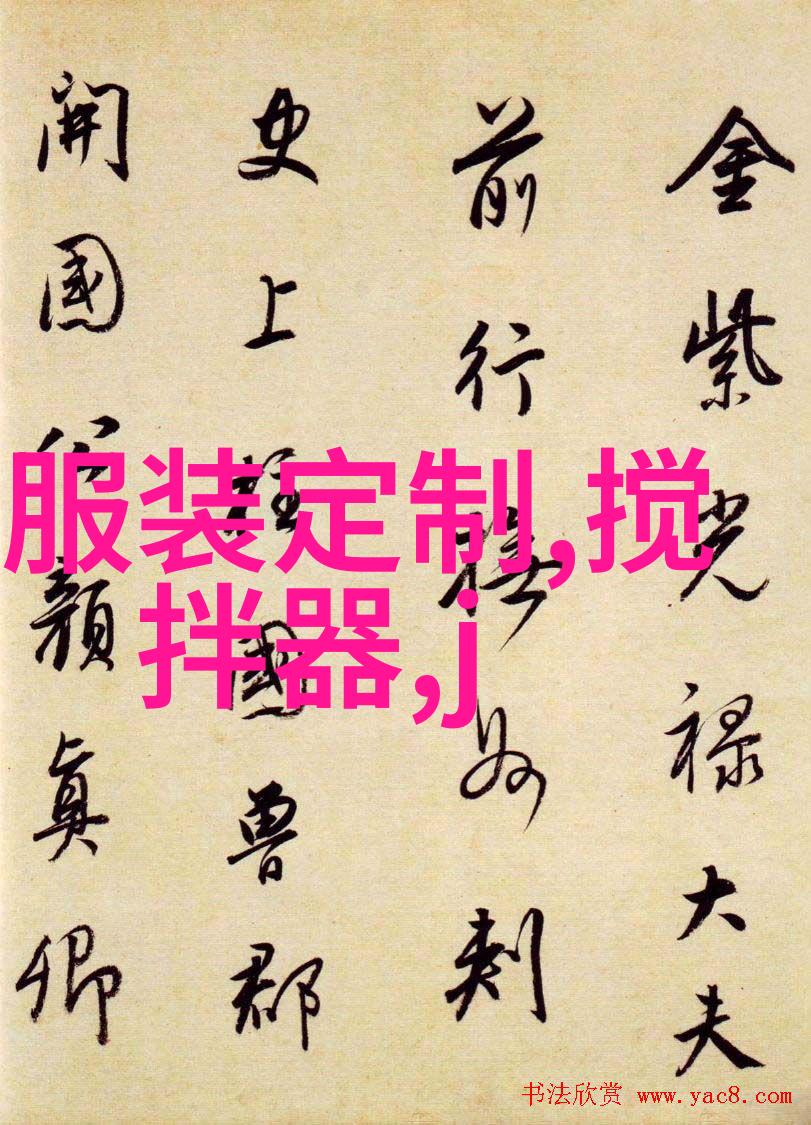 金紫光禄大夫
前行撫州刺
史上柱國魯郡
開國公顏真卿
服装定制,搅
拌器,j
书法欣赏 www.yac8.com